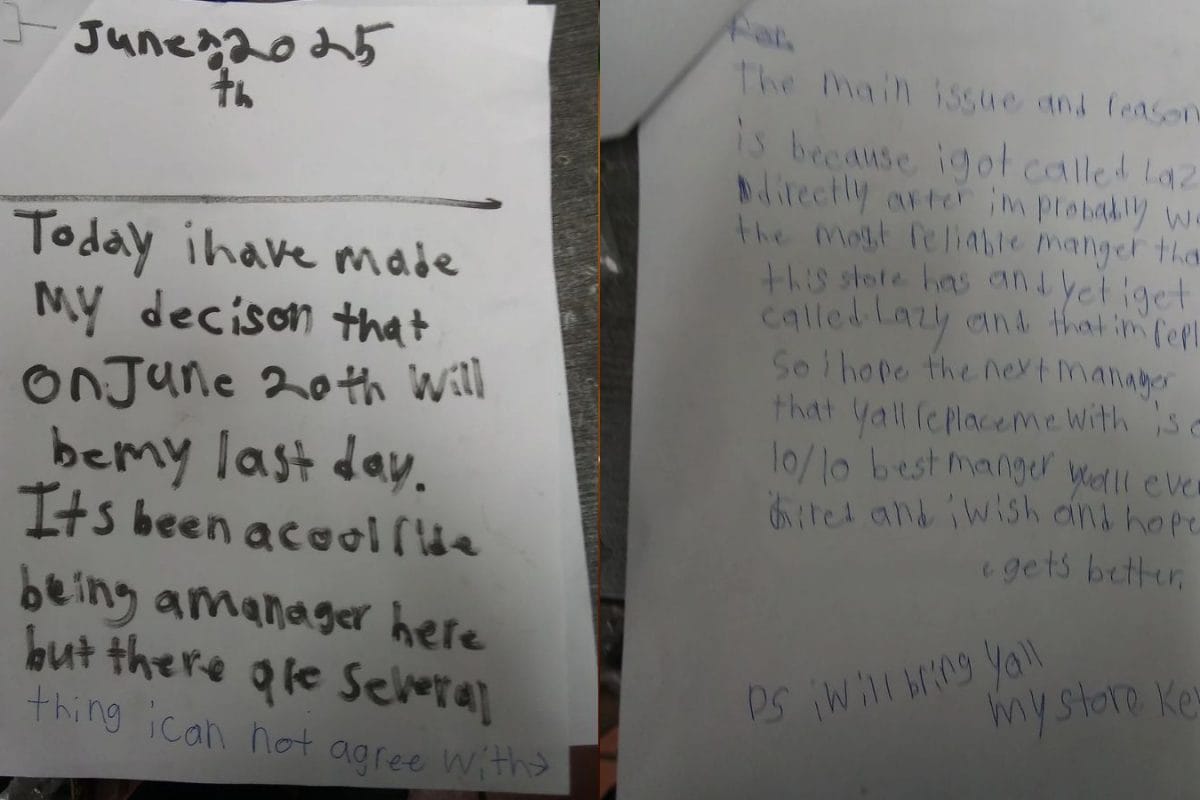 June 2025
th
Today i have made
My decison that
on June 20th Will
be my last day.
Its been a cool ride
being a manager here
but there are several
thing i can not agree with→
The main issue and reason
is because i got called Laz
directly after im probably
the most reliable manger tha
this store has and yet i get
called Lazy and that im repl
So i hope the next manager
that yall replace me with is
10/10 best manger yall eve
hired and i wish and hope
gets better.
PS i Will bring yall
my store Ke